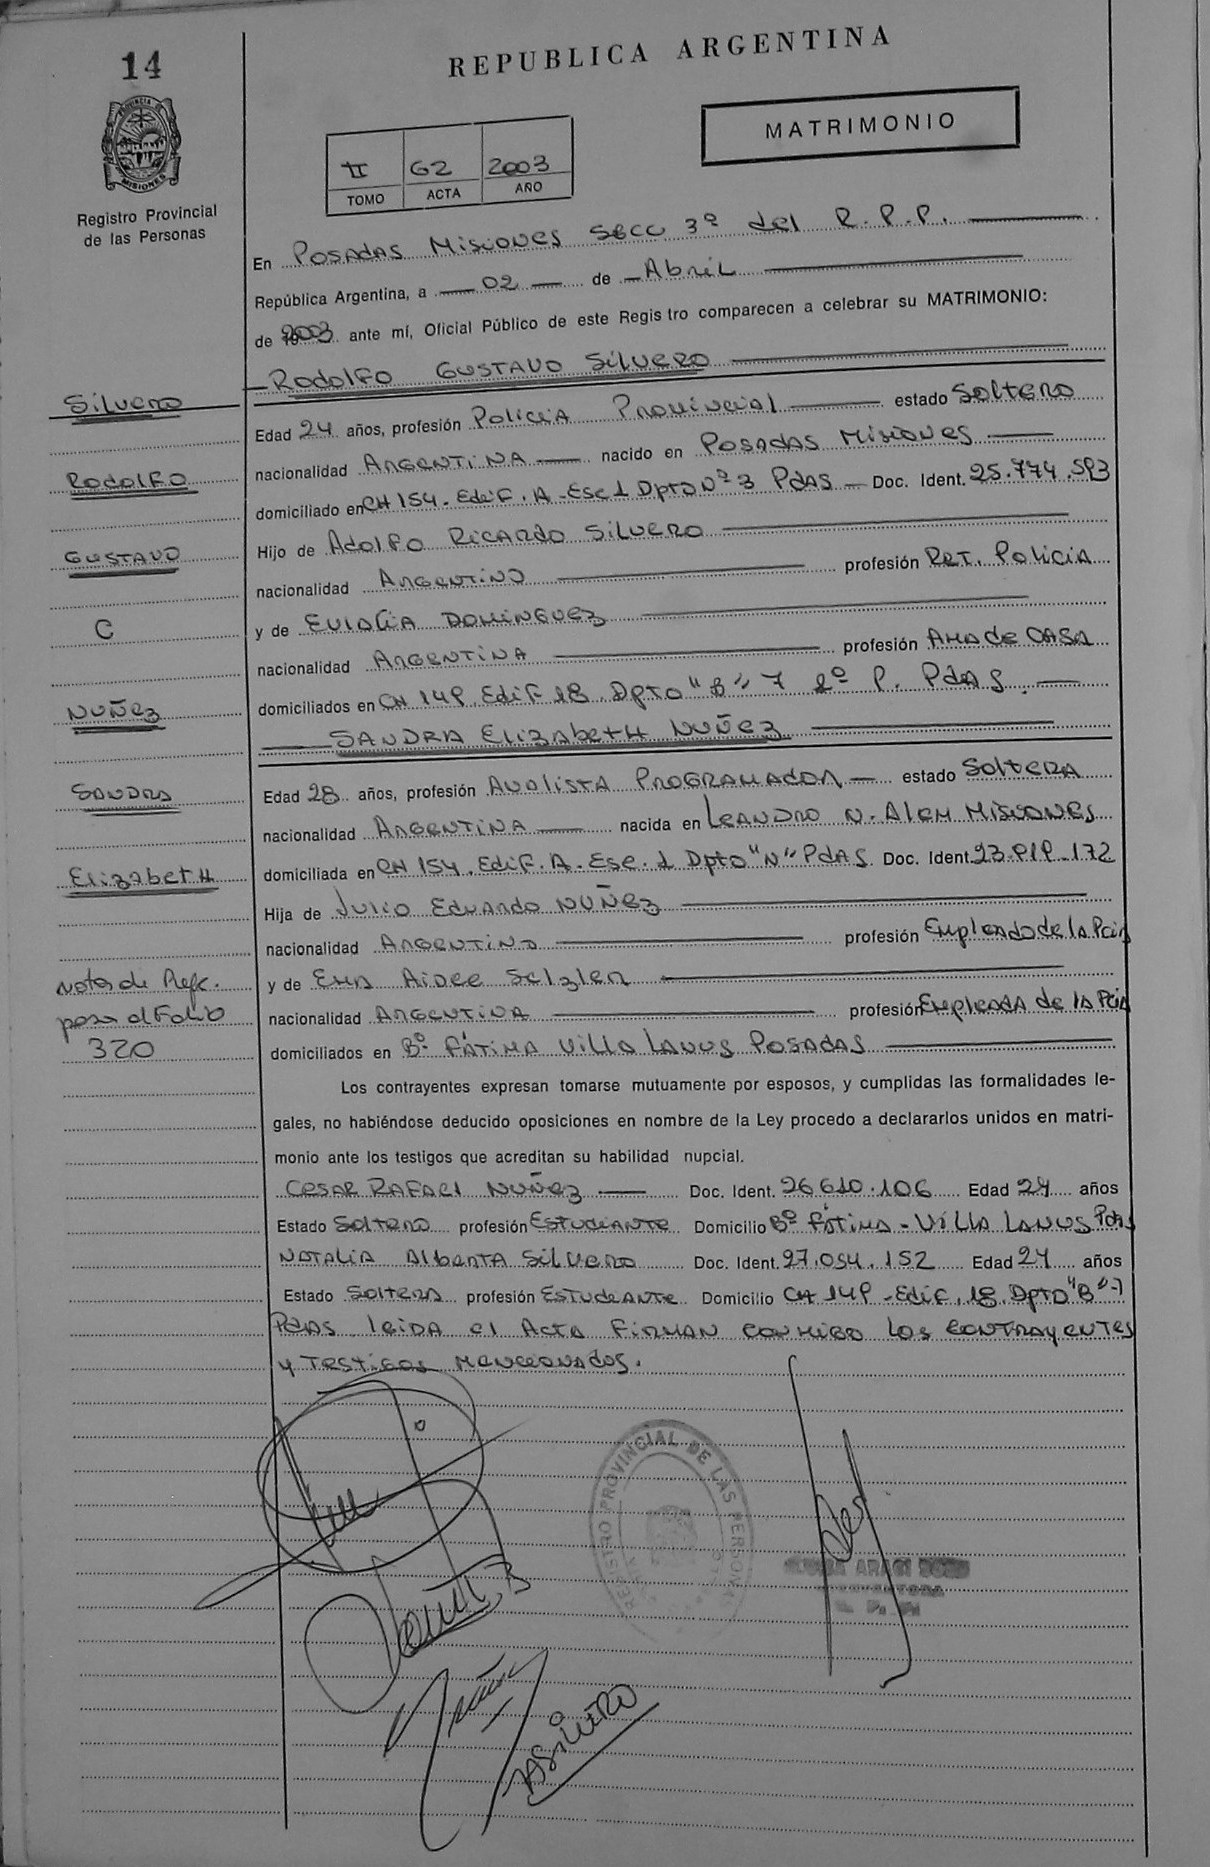 14
REPUBLICA ARGENTINA
MATRIMONIO
II 62 2003
TOMO ACTA AÑO
PROVINCIA DE MISIONES
Registro Provincial
de las Personas
En Posadas Misiones Secc 3º del R.P.P.
República Argentina, a 02 de Abril
de 2003 ante mí, Oficial Público de este Registro comparecen a celebrar su MATRIMONIO:
Rodolfo Gustavo Silvero
Edad 24 años, profesión Policia Provincial estado Soltero
nacionalidad Argentina nacido en Posadas Misiones
domiciliado en CH 154. Edif. A. Esc 1 Dpto Nº 3 Pdas Doc. Ident. 25.774.593
Hijo de Adolfo Ricardo Silvero
nacionalidad Argentino profesión Ret. Policia
y de Eulalia Dominguez
nacionalidad Argentina profesión Ama de Casa
domiciliados en CH 149. Edif 18. Dpto "B" 7 2º P. Pdas.
Sandra Elizabeth Nuñez
Edad 28 años, profesión Analista Programador estado Soltera
nacionalidad Argentina nacida en Leandro N. Alem Misiones
domiciliada en CH 154. Edif. A. Esc. 1 Dpto "N" Pdas Doc. Ident. 23.919.172
Hija de Julio Eduardo Nuñez
nacionalidad Argentino profesión Empleado de la Pcia
y de Ema Aidee Selzler
nacionalidad Argentina profesión Empleada de la Pcia
domiciliados en Bº Fátima Villa Lanus Posadas
Los contrayentes expresan tomarse mutuamente por esposos, y cumplidas las formalidades le-
gales, no habiéndose deducido oposiciones en nombre de la Ley procedo a declararlos unidos en matri-
monio ante los testigos que acreditan su habilidad nupcial.
Cesar Rafael Nuñez Doc. Ident. 26610.106 Edad 24 años
Estado Soltero profesión Estudiante Domicilio Bº Fátima - Villa Lanus Pdas
Natalia Alberta Silvero Doc. Ident. 27.054.152 Edad 24 años
Estado Soltera profesión Estudiante Domicilio CH 149 - Edif. 18. Dpto "B" -7
Pdas leida el Acta firman conmigo los contrayentes
y testigos mencionados.
Silvero
Rodolfo
Gustavo
C
Nuñez
Sandra
Elizabeth
Nota de Refc.
pasa al Folio
320
REGISTRO PROVINCIAL DE LAS PERSONAS
ASilvero